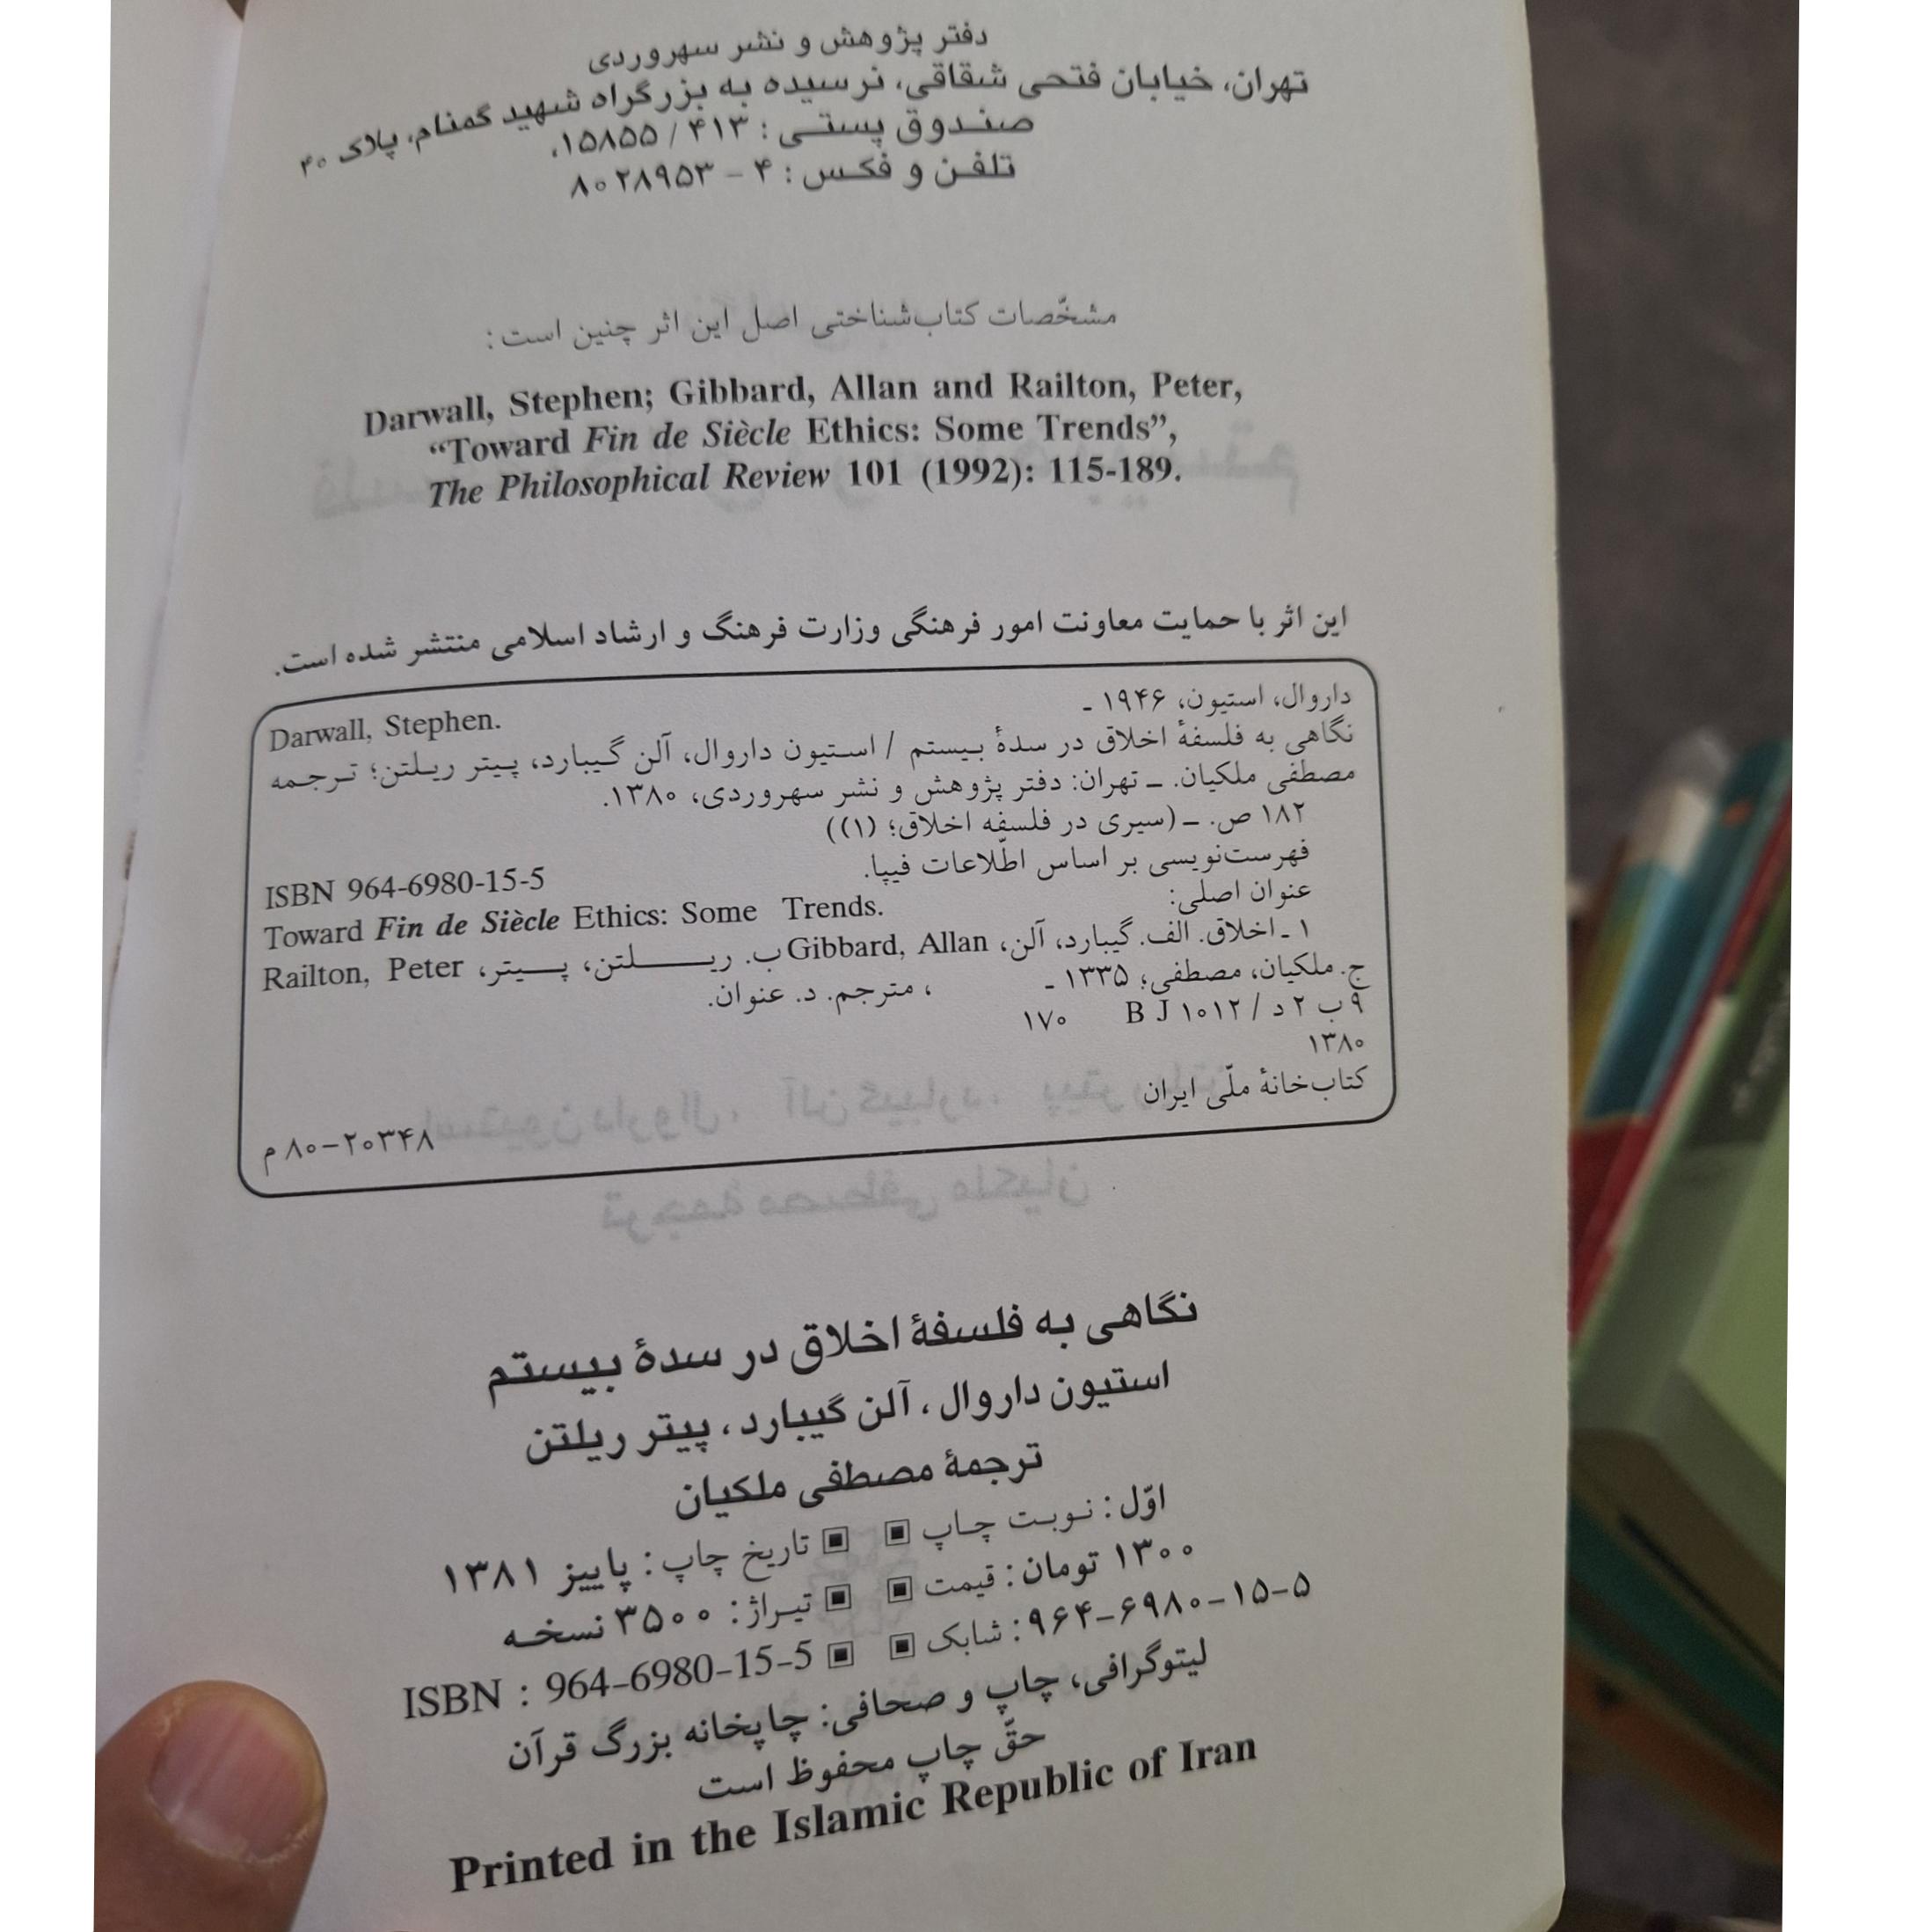 دفتر پژوهش و نشر سهروردی
تهران، خیابان فتحی شقاقی، نرسیده به بزرگراه شهید گمنام، پلاک ۴۰
صندوق پستی : ۴۱۳ / ۱۵۸۵۵،
تلفن و فکس : ۴ – ۸۰۲۸۹۵۳
مشخّصات کتاب‌شناختی اصل این اثر چنین است:
Darwall, Stephen; Gibbard, Allan and Railton, Peter,
“Toward Fin de Siècle Ethics: Some Trends”,
The Philosophical Review 101 (1992): 115-189.
این اثر با حمایت معاونت امور فرهنگی وزارت فرهنگ و ارشاد اسلامی منتشر شده است.
داروال، استیون، ۱۹۴۶ ـ Darwall, Stephen.
نگاهی به فلسفهٔ اخلاق در سدهٔ بیستم / استیون داروال، آلن گیبارد، پیتر ریلتن؛ ترجمه
مصطفی ملکیان. ــ تهران: دفتر پژوهش و نشر سهروردی، ۱۳۸۰.
۱۸۲ ص. ــ (سیری در فلسفه اخلاق؛ (۱))
فهرست‌نویسی بر اساس اطّلاعات فیپا. ISBN 964-6980-15-5
عنوان اصلی: Toward Fin de Siècle Ethics: Some Trends.
۱ ـ اخلاق. الف. گیبارد، آلن، Gibbard, Allan ب. ریلتن، پیتر، Railton, Peter
ج. ملکیان، مصطفی؛ ۱۳۳۵ ـ ، مترجم. د. عنوان.
۹ ب ۲ د / ۱۰۱۲ B J ۱۷۰
۱۳۸۰
کتاب‌خانهٔ ملّی ایران
۸۰-۲۰۳۴۸ م
نگاهی به فلسفهٔ اخلاق در سدهٔ بیستم
استیون داروال، آلن گیبارد، پیتر ریلتن
ترجمهٔ مصطفی ملکیان
اوّل : نوبت چاپ ▣ ▣ تاریخ چاپ : پاییز ۱۳۸۱
۱۳۰۰ تومان : قیمت ▣ ▣ تیراژ : ۳۵۰۰ نسخه
۹۶۴-۶۹۸۰-۱۵-۵ : شابک ▣ ▣ ISBN : 964-6980-15-5
لیتوگرافی، چاپ و صحافی: چاپخانه بزرگ قرآن
حقّ چاپ محفوظ است
Printed in the Islamic Republic of Iran